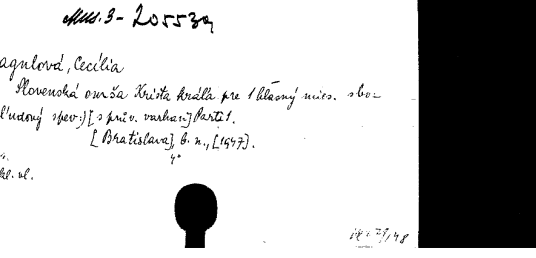 Mus. 3 - 20553a
agulová, Cecília
Slovenská omša Krista kráľa pre 1 hlasný mies. sbo-
ľudový spev:) [s priev. varhan] Part. 1.
[Bratislava], b. n., [1947].
4°
kl. vl.